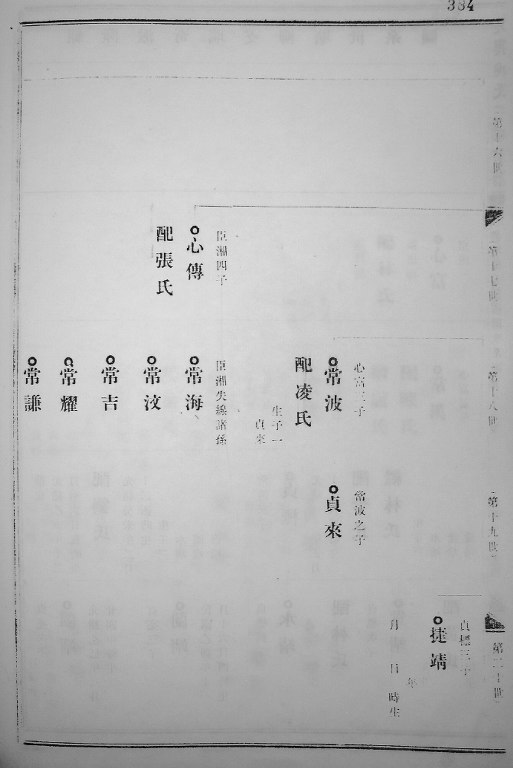 384
第十六世
第十七世
第十八世
第十九世
第二十世
貞標三子
捷靖
年
月 日 時生
心富三子
常波
配凌氏
生子一
貞來
常波之子
貞來
臣湘四子
心傳
配張氏
臣湘失緣諸係
常海
常汶
常吉
常耀
常謙